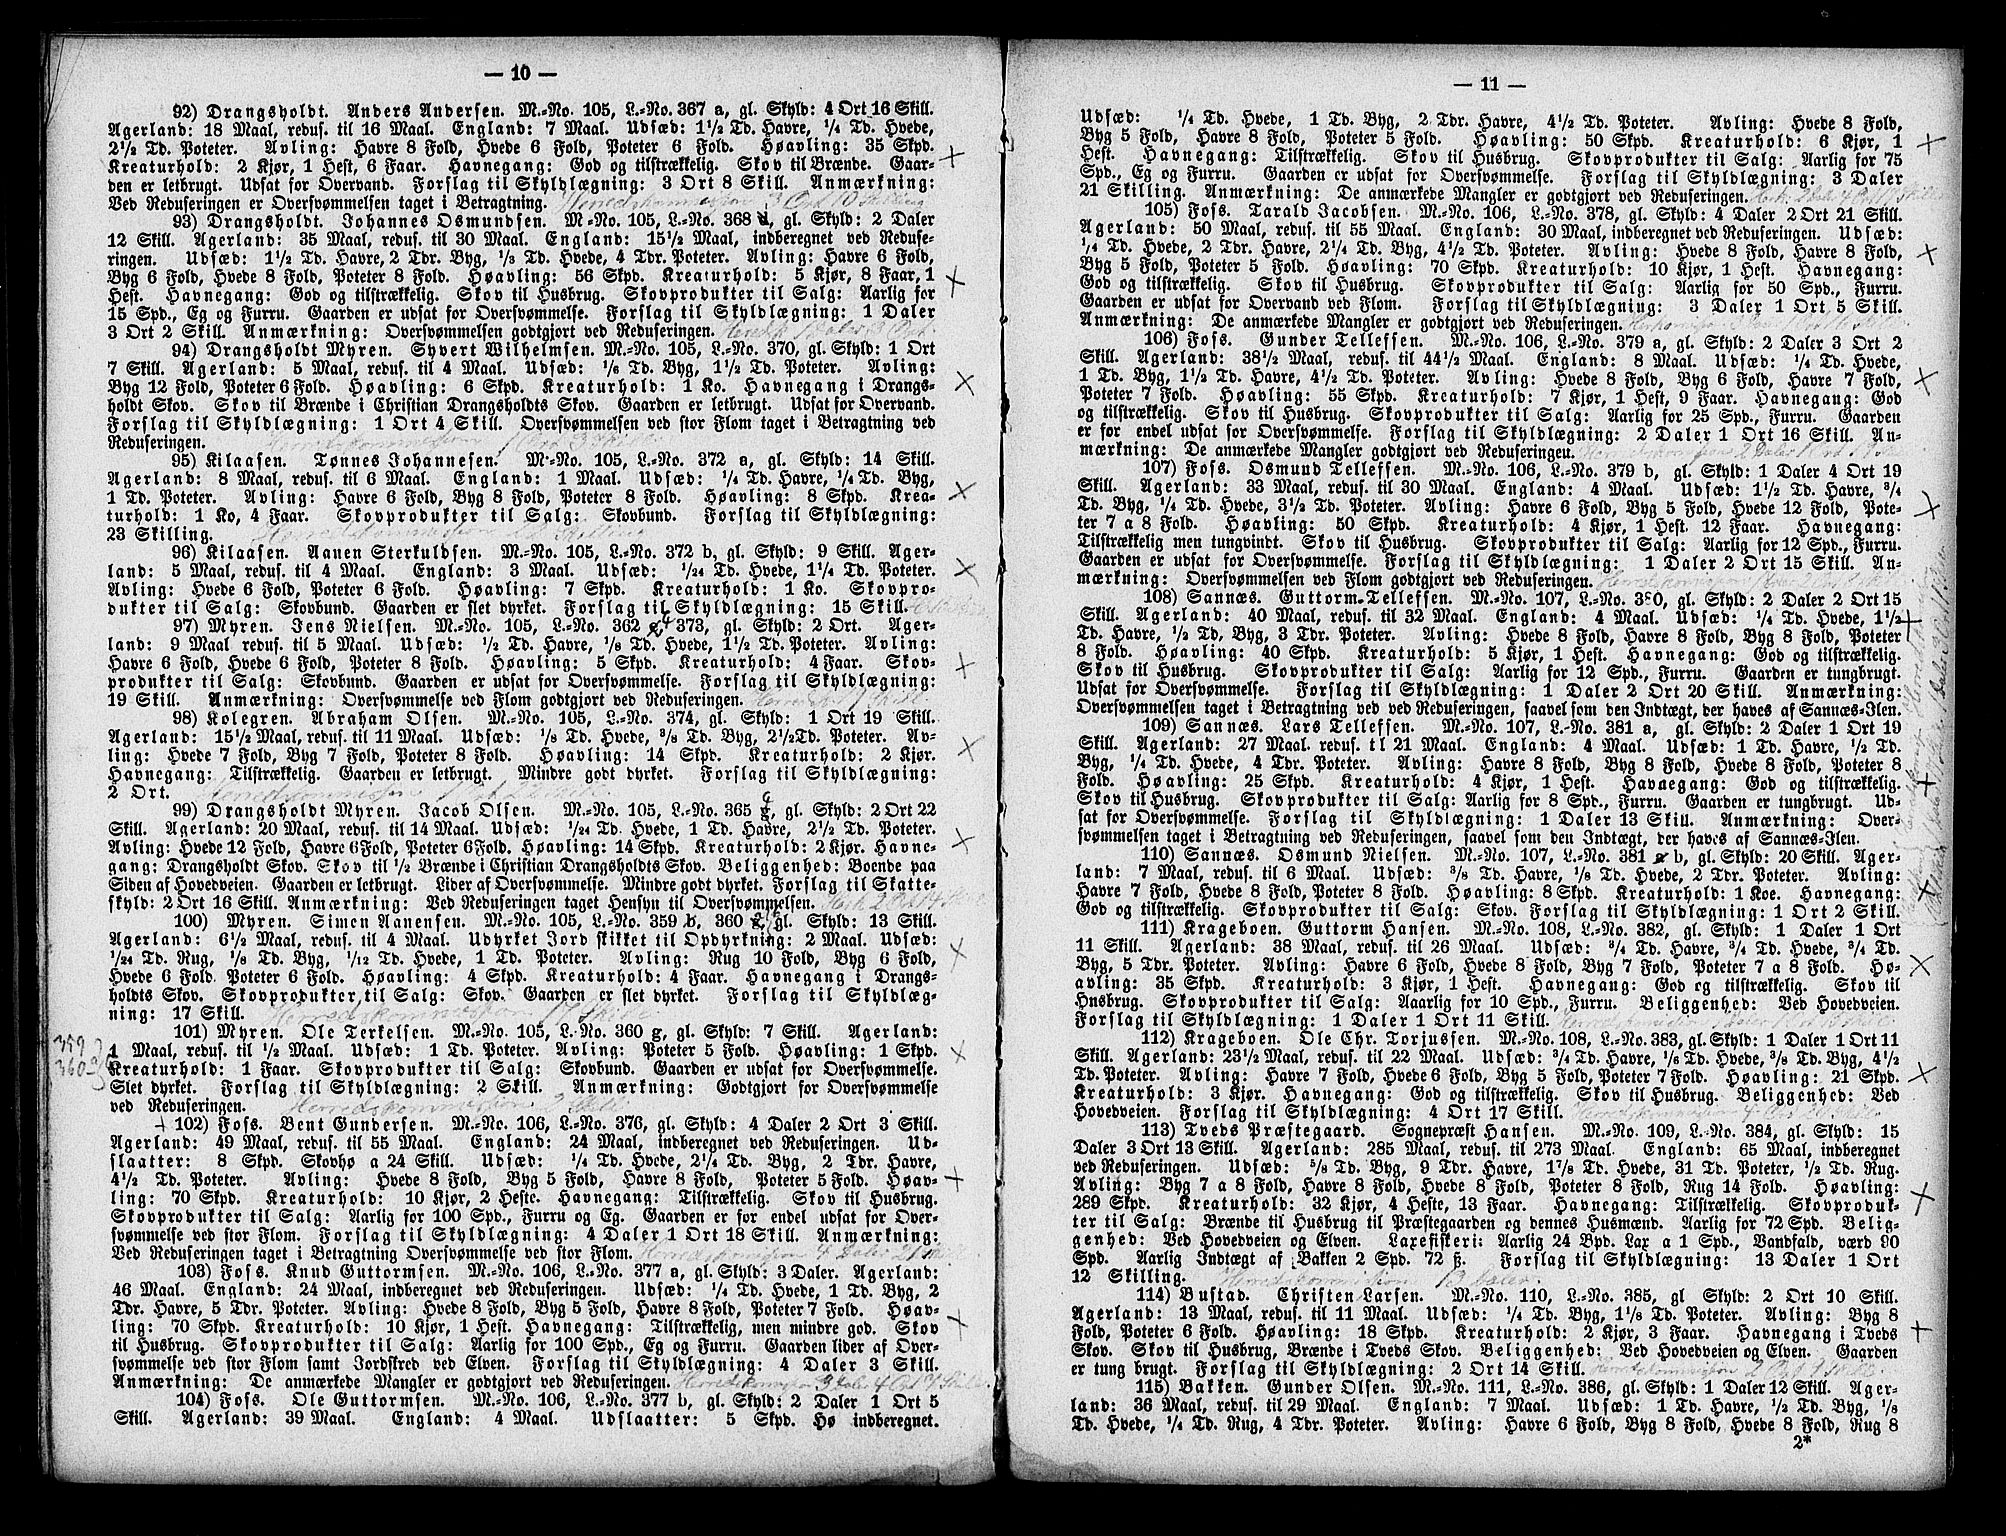 — 10 —
92) Drangsholdt. Anders Andersen. M.-No. 105, L.-No. 367 a, gl. Skyld: 4 Ort 16 Skill.
Agerland: 18 Maal, reduf. til 16 Maal. England: 7 Maal. Udsæd: 1½ Td. Havre, ¼ Td. Hvede,
2½ Td. Poteter. Avling: Havre 8 Fold, Hvede 6 Fold, Poteter 6 Fold. Høavling: 35 Skpd.
Kreaturhold: 2 Kjør, 1 Hest, 6 Faar. Havnegang: God og tilstrækkelig. Skov til Brænde. Gaar-
den er letbrugt. Udsat for Overvand. Forslag til Skyldlægning: 3 Ort 8 Skill. Anmærkning:
Ved Reduseringen er Oversvømmelsen taget i Betragtning. Herredskommission 3 Ort 10 Skilling
93) Drangsholdt. Johannes Osmundsen. M.-No. 105, L.-No. 368 d, gl. Skyld: 2 Daler
12 Skill. Agerland: 35 Maal, reduf. til 30 Maal. England: 15½ Maal, indberegnet ved Reduse-
ringen. Udsæd: 1½ Td. Havre, 2 Tdr. Byg, ⅓ Td. Hvede, 4 Tdr. Poteter. Avling: Havre 6 Fold,
Byg 6 Fold, Hvede 8 Fold, Poteter 8 Fold. Høavling: 56 Skpd. Kreaturhold: 5 Kjør, 8 Faar, 1
Hest. Havnegang: God og tilstrækkelig. Skov til Husbrug. Skovprodukter til Salg: Aarlig for
15 Spd., Eg og Furru. Gaarden er udsat for Oversvømmelse. Forslag til Skyldlægning: 1 Daler
3 Ort 2 Skill. Anmærkning: Oversvømmelsen godtgjort ved Reduseringen. Herredsk. 1 Daler 3 Ort.
94) Drangsholdt Myren. Syvert Wilhelmsen. M.-No. 105, L.-No. 370, gl. Skyld: 1 Ort
7 Skill. Agerland: 5 Maal, reduf. til 4 Maal. Udsæd: ⅛ Td. Byg, 1½ Td. Poteter. Avling:
Byg 12 Fold, Poteter 6 Fold. Høavling: 6 Skpd. Kreaturhold: 1 Ko. Havnegang i Drangs-
holdt Skov. Skov til Brænde i Christian Drangsholdts Skov. Gaarden er letbrugt. Udsat for Overvand.
Forslag til Skyldlægning: 1 Ort 4 Skill. Oversvømmelsen ved stor Flom taget i Betragtning ved
Reduseringen. Herredskommission 1 Ort 3 Skill.
95) Kilaasen. Tønnes Johannesen. M.-No. 105, L.-No. 372 a, gl. Skyld: 14 Skill.
Agerland: 8 Maal, reduf. til 6 Maal. England: 1 Maal. Udsæd: ¼ Td. Havre, ¼ Td. Byg,
1 Td. Poteter. Avling: Havre 6 Fold, Byg 8 Fold, Poteter 8 Fold. Høavling: 8 Skpd. Krea-
turhold: 1 Ko, 4 Faar. Skovprodukter til Salg: Skovbund. Forslag til Skyldlægning:
23 Skilling. Herredskommission Skilling
96) Kilaasen. Aanen Sterkuldsen. M.-No. 105, L.-No. 372 b, gl. Skyld: 9 Skill. Ager-
land: 5 Maal, reduf. til 4 Maal. England: 3 Maal. Udsæd: 1/24 Td. Hvede, 1¼ Td. Poteter.
Avling: Hvede 6 Fold, Poteter 6 Fold. Høavling: 7 Skpd. Kreaturhold: 1 Ko. Skovpro-
dukter til Salg: Skovbund. Gaarden er slet dyrket. Forslag til Skyldlægning: 15 Skill.
97) Myren. Jens Nielsen. M.-No. 105, L.-No. 362 373, gl. Skyld: 2 Ort. Ager-
land: 9 Maal reduf. til 5 Maal. Udsæd: ½ Td. Havre, ⅛ Td. Hvede, 1½ Td. Poteter. Avling:
Havre 6 Fold, Hvede 6 Fold, Poteter 8 Fold. Høavling: 5 Skpd. Kreaturhold: 4 Faar. Skov-
produkter til Salg: Skovbund. Gaarden er udsat for Oversvømmelse. Forslag til Skyldlægning:
19 Skill. Anmærkning: Oversvømmelse ved Flom godtgjort ved Reduseringen. Herredsk. Skill.
98) Kolegren. Abraham Olsen. M.-No. 105, L.-No. 374, gl. Skyld: 1 Ort 19 Skill.
Agerland: 15½ Maal, reduf. til 11 Maal. Udsæd: ⅛ Td. Hvede, ⅜ Td. Byg, 2½ Td. Poteter. Av-
ling: Hvede 7 Fold, Byg 7 Fold, Poteter 8 Fold. Høavling: 14 Skpd. Kreaturhold: 2 Kjør.
Havnegang: Tilstrækkelig. Gaarden er letbrugt. Mindre godt dyrket. Forslag til Skyldlægning:
2 Ort. Herredskommission 1 Ort 22 Skill.
99) Drangsholdt Myren. Jacob Olsen. M.-No. 105, L.-No. 365 g, gl. Skyld: 2 Ort 22
Skill. Agerland: 20 Maal, reduf. til 14 Maal. Udsæd: 1/24 Td. Hvede, 1 Td. Havre, 2½ Td. Poteter.
Avling: Hvede 12 Fold, Havre 6 Fold, Poteter 6 Fold. Høavling: 14 Skpd. Kreaturhold: 2 Kjør. Havne-
gang: Drangsholdt Skov. Skov til ½ Brænde i Christian Drangsholdts Skov. Beliggenhed: Boende paa
Siden af Hovedveien. Gaarden er letbrugt. Lider af Oversvømmelse. Mindre godt dyrket. Forslag til Skatte-
skyld: 2 Ort 16 Skill. Anmærkning: Ved Reduseringen taget Hensyn til Oversvømmelsen. Herk. 2 Ort 14 Skill.
100) Myren. Simen Aanensen. M.-No. 105, L.-No. 359 b, 360 gl. Skyld: 13 Skill.
Agerland: 6½ Maal, reduf. til 4 Maal. Udyrket Jord skikket til Opdyrkning: 2 Maal. Udsæd:
1/24 Td. Rug, ⅛ Td. Byg, 1/12 Td. Hvede, 1 Td. Poteter. Avling: Rug 10 Fold, Byg 6 Fold,
Hvede 6 Fold Poteter 6 Fold. Høavling: 4 Skpd. Kreaturhold: 4 Faar. Havnegang i Drangs-
holdts Skov. Skovprodukter til Salg: Skov. Gaarden er slet dyrket. Forslag til Skyldlæg-
ning: 17 Skill. Herredskommission 17 Skill.
101) Myren. Ole Terkelsen. M.-No. 105, L.-No. 360 g, gl. Skyld: 7 Skill. Agerland:
359
1 Maal, reduf. til ½ Maal. Udsæd: 1 Td. Poteter. Avling: Poteter 5 Fold. Høavling: 1 Skpd.
360
Kreaturhold: 1 Faar. Skovprodukter til Salg: Skovbund. Gaarden er udsat for Oversvømmelse.
Slet dyrket. Forslag til Skyldlægning: 2 Skill. Anmærkning: Godtgjort for Oversvømmelse
ved Reduseringen. Herredskommission 2 Skill
102) Foss. Bent Gundersen. M.-No. 106, L.-No. 376, gl. Skyld: 4 Daler 2 Ort 3 Skill.
Agerland: 49 Maal, reduf. til 55 Maal. England: 24 Maal, indberegnet ved Reduseringen. Ud-
slaatter: 8 Skpd. Skovhø a 24 Skill. Udsæd: ¼ Td. Hvede, 2¼ Td. Byg, 2 Tdr. Havre,
4½ Td. Poteter. Avling: Hvede 8 Fold, Byg 5 Fold, Havre 8 Fold, Poteter 5 Fold. Høav-
ling: 70 Skpd. Kreaturhold: 10 Kjør, 2 Heste. Havnegang: Tilstrækkelig. Skov til Husbrug.
Skovprodukter til Salg: Aarlig for 100 Spd., Furru og Eg. Gaarden er for endel udsat for Over-
svømmelse ved stor Flom. Forslag til Skyldlægning: 4 Daler 1 Ort 18 Skill. Anmærkning:
Ved Reduseringen taget i Betragtning Oversvømmelse ved stor Flom. Herredskommission 4 Daler
103) Foss. Knud Guttormsen. M.-No. 106, L.-No. 377 a, gl. Skyld: 3 Daler. Agerland:
46 Maal. England: 24 Maal, indberegnet ved Reduseringen. Udsæd: ¼ Td. Hvede, 1 Td. Byg, 2
Tdr. Havre, 5 Tdr. Poteter. Avling: Hvede 8 Fold, Byg 5 Fold, Havre 8 Fold, Poteter 7 Fold. Høav-
ling: 70 Skpd. Kreaturhold: 10 Kjør, 1 Hest. Havnegang: Tilstrækkelig, men mindre god. Skov
til Husbrug. Skovprodukter til Salg: Aarlig for 100 Spd., Eg og Furru. Gaarden lider af Over-
svømmelse ved stor Flom samt Jordskred ved Elven. Forslag til Skyldlægning: 4 Daler 3 Skill.
Anmærkning: De anmærkede Mangler er godtgjort ved Reduseringen. Herredskommission 3 Daler 4 Ort
104) Foss. Ole Guttormsen. M.-No. 106, L.-No. 377 b, gl. Skyld: 2 Daler 1 Ort 5
Skill. Agerland: 39 Maal. England: 4 Maal. Udslaatter: 5 Skpd. Hø indberegnet.
— 11 —
Udsæd: ¼ Td. Hvede, 1 Td. Byg, 2 Tdr. Havre, 4½ Td. Poteter. Avling: Hvede 8 Fold,
Byg 5 Fold, Havre 8 Fold, Poteter 5 Fold. Høavling: 50 Skpd. Kreaturhold: 6 Kjør, 1
Hest. Havnegang: Tilstrækkelig. Skov til Husbrug. Skovprodukter til Salg: Aarlig for 75
Spd., Eg og Furru. Gaarden er udsat for Oversvømmelse. Forslag til Skyldlægning: 3 Daler
21 Skilling. Anmærkning: De anmærkede Mangler er godtgjort ved Reduseringen.
105) Foss. Tarald Jacobsen. M.-No. 106, L.-No. 378, gl. Skyld: 4 Daler 2 Ort 21 Skill.
Agerland: 50 Maal, reduf. til 55 Maal. England: 30 Maal, indberegnet ved Reduseringen. Udsæd:
¼ Td. Hvede, 2 Tdr. Havre, 2¼ Td. Byg, 4½ Td. Poteter. Avling: Hvede 8 Fold, Havre 8 Fold,
Byg 5 Fold, Poteter 5 Fold. Høavling: 70 Skpd. Kreaturhold: 10 Kjør, 1 Hest. Havnegang:
God og tilstrækkelig. Skov til Husbrug. Skovprodukter til Salg: Aarlig for 50 Spd., Furru.
Gaarden er udsat for Overvand ved Flom. Forslag til Skyldlægning: 3 Daler 1 Ort 5 Skill.
Anmærkning: De anmærkede Mangler er godtgjort ved Reduseringen.
106) Foss. Gunder Tellefsen. M.-No. 106, L.-No. 379 a, gl. Skyld: 2 Daler 3 Ort 2
Skill. Agerland: 38½ Maal, reduf. til 44½ Maal. England: 8 Maal. Udsæd: ¼ Td. Hvede,
1 Td. Byg, 1½ Td. Havre, 4½ Td. Poteter. Avling: Hvede 8 Fold, Byg 6 Fold, Havre 7 Fold,
Poteter 7 Fold. Høavling: 55 Skpd. Kreaturhold: 7 Kjør, 1 Hest, 9 Faar. Havnegang: God
og tilstrækkelig. Skov til Husbrug. Skovprodukter til Salg: Aarlig for 25 Spd., Furru. Gaarden
er for endel udsat for Oversvømmelse. Forslag til Skyldlægning: 2 Daler 1 Ort 16 Skill. An-
mærkning: De anmærkede Mangler godtgjort ved Reduseringen. Herredskommission 2 Daler 1 Ort
107) Foss. Osmund Tellefsen. M.-No. 106, L.-No. 379 b, gl. Skyld: 1 Daler 4 Ort 19
Skill. Agerland: 33 Maal, reduf. til 30 Maal. England: 4 Maal. Udsæd: 1½ Td. Havre, ¾
Td. Byg, ¼ Td. Hvede, 3½ Td. Poteter. Avling: Havre 6 Fold, Byg 5 Fold, Hvede 12 Fold, Pote-
ter 7 a 8 Fold. Høavling: 50 Skpd. Kreaturhold: 4 Kjør, 1 Hest. 12 Faar. Havnegang:
Tilstrækkelig men tungvindt. Skov til Husbrug. Skovprodukter til Salg: Aarlig for 12 Spd., Furru.
Gaarden er udsat for Oversvømmelse. Forslag til Skyldlægning: 1 Daler 2 Ort 15 Skill. An-
mærkning: Oversvømmelsen ved Flom godtgjort ved Reduseringen. Herredskommission 1 Daler 2 Ort
108) Sannæs. Guttorm Tellefsen. M.-No. 107, L.-No. 380, gl. Skyld: 2 Daler 2 Ort 15
Skill. Agerland: 40 Maal, reduf. til 32 Maal. England: 4 Maal. Udsæd: ¼ Td. Hvede, 1½
Td. Havre, ½ Td, Byg, 3 Tdr. Poteter. Avling: Hvede 8 Fold, Havre 8 Fold, Byg 8 Fold, Poteter
8 Fold. Høavling: 40 Skpd. Kreaturhold: 5 Kjør, 1 Hest. Havnegang: God og tilstrækkelig.
Skov til Husbrug. Skovprodukter til Salg: Aarlig for 12 Spd., Furru. Gaarden er tungbrugt.
Udsat for Oversvømmelse. Forslag til Skyldlægning: 1 Daler 2 Ort 20 Skill. Anmærkning:
Oversvømmelsen taget i Betragtning ved ved Reduseringen, saavel som den Indtægt, der haves af Sannæs-Ilen.
109) Sannæs. Lars Tellefsen. M.-No. 107, L.-No. 381 a, gl. Skyld: 2 Daler 1 Ort 19
Skill. Agerland: 27 Maal. reduf. t l 21 Maal. England: 4 Maal. Udsæd: 1 Td. Havre, ½ Td.
Byg, ¼ Td. Hvede, 4 Tdr. Poteter. Avling: Havre 8 Fold, Byg 8 Fold, Hvede 8 Fold, Poteter 8
Fold. Høavling: 25 Skpd. Kreaturhold: 4 Kjør, 1 Hest. Havnegang: God og tilstrækkelig.
Skov til Husbrug. Skovprodukter til Salg: Aarlig for 8 Spd., Furru. Gaarden er tungbrugt. Ud-
sat for Oversvømmelse. Forslag til Skyldlægning: 1 Daler 13 Skill. Anmærkning: Over-
svømmelsen taget i Betragtning ved Reduseringen, saavel som den Indtægt, der haves af Sannæs-Ilen.
110) Sannæs. Osmund Nielsen. M.-No. 107, L.-No. 381 b, gl. Skyld: 20 Skill. Ager-
land: 7 Maal, reduf. til 6 Maal. Udsæd: ⅜ Td. Havre, ⅛ Td. Hvede, 2 Tdr. Poteter. Avling:
Havre 7 Fold, Hvede 8 Fold, Poteter 8 Fold. Høavling: 8 Skpd. Kreaturhold: 1 Koe. Havnegang:
God og tilstrækkelig. Skovprodukter til Salg: Skov. Forslag til Skyldlægning: 1 Ort 2 Skill.
111) Krageboen. Guttorm Hansen. M.-No. 108, L.-No. 382, gl. Skyld: 1 Daler 1 Ort
11 Skill. Agerland: 38 Maal, reduf. til 26 Maal. Udsæd: ¾ Td. Havre, ¾ Td. Hvede, ¾ Td.
Byg, 5 Tdr. Poteter. Avling: Havre 6 Fold, Hvede 8 Fold, Byg 7 Fold, Poteter 7 a 8 Fold. Hø-
avling: 35 Skpd. Kreaturhold: 3 Kjør, 1 Hest. Havnegang: God og tilstrækkelig. Skov til
Husbrug. Skovprodukter til Salg: Aaarlig for 10 Spd., Furru. Beliggenhed: Ved Hovedveien.
Forslag til Skyldlægning: 1 Daler 1 Ort 11 Skill. Herredskommission 1 Daler 1 Ort
112) Krageboen. Ole Chr. Torjussen. M.-No. 108, L.-No. 383, gl. Skyld: 1 Daler 1 Ort 11
Skill. Agerland: 23½ Maal, reduf. til 22 Maal. Udsæd: ¾ Td. Havre, ⅛ Td. Hvede, ⅜ Td. Byg, 4½
Td. Poteter. Avling: Havre 7 Fold, Hvede 6 Fold, Byg 5 Fold, Poteter 7 Fold. Høavling: 21 Skpd.
Kreaturhold: 3 Kjør. Havnegang: God og tilstrækkelig. Skov til Husbrug. Beliggenhed: Ved
Hovedveien. Forslag til Skyldlægning: 4 Ort 17 Skill. Herredskommission 4 Ort
113) Tveds Præstegaard. Sognepræst Hansen. M.-No. 109, L.-No. 384, gl. Skyld: 15
Daler 3 Ort 13 Skill. Agerland: 285 Maal, reduf. til 273 Maal. England: 65 Maal, indberegnet
ved Reduseringen. Udsæd: ⅝ Td. Byg, 9 Tdr. Havre, 1⅞ Td. Hvede, 31 Td. Poteter, ½ Td. Rug.
Avling: Byg 7 a 8 Fold, Havre 8 Fold, Hvede 8 Fold, Poteter 8 Fold, Rug 14 Fold. Høavling:
289 Skpd. Kreaturhold: 32 Kjør, 4 Heste, 13 Faar. Havnegang: Tilstrækkelig. Skovproduk-
ter til Salg: Brænde til Husbrug til Præstegaarden og dennes Husmænd. Aarlig for 72 Spd. Belig-
genhed: Ved Hovedveien og Elven. Laxefisteri: Aarlig 24 Bpd. Lax a 1 Spd., Vandfald, værd 90
Spd. Aarlig Indtægt af Bakken 2 Spd. 72 ß. Forslag til Skyldlægning: 13 Daler 1 Ort
12 Skilling. Herredskommission 13 Daler.
114) Bustad. Christen Larsen. M.-No. 110, L.-No. 385, gl Skyld: 2 Ort 10 Skill.
Agerland: 13 Maal, reduf. til 11 Maal. Udsæd: ¼ Td. Byg, 1⅛ Td. Poteter. Avling: Byg 8
Fold, Poteter 6 Fold. Høavling: 18 Skpd. Kreaturhold: 2 Kjør, 3 Faar. Havnegang i Tveds
Skov. Skov til Husbrug, Brænde i Tveds Skov. Beliggenhed: Ved Hovedveien og Elven. Gaarden
er tung brugt. Forslag til Skyldlægning: 2 Ort 14 Skill. Herredskommission 2 Ort
115) Bakken. Gunder Olsen. M.-No. 111, L.-No. 386, gl. Skyld: 1 Daler 12 Skill. Ager-
land: 36 Maal, reduf. til 29 Maal. England: 7 Maal. Udsæd: 1 Td. Havre, ½ Td. Byg, ⅛
Td. Hvede, ¼ Td. Rug, 4 Tdr. Poteter. Avling: Havre 6 Fold, Byg 8 Fold, Hvede 8 Fold, Rug 8
2*